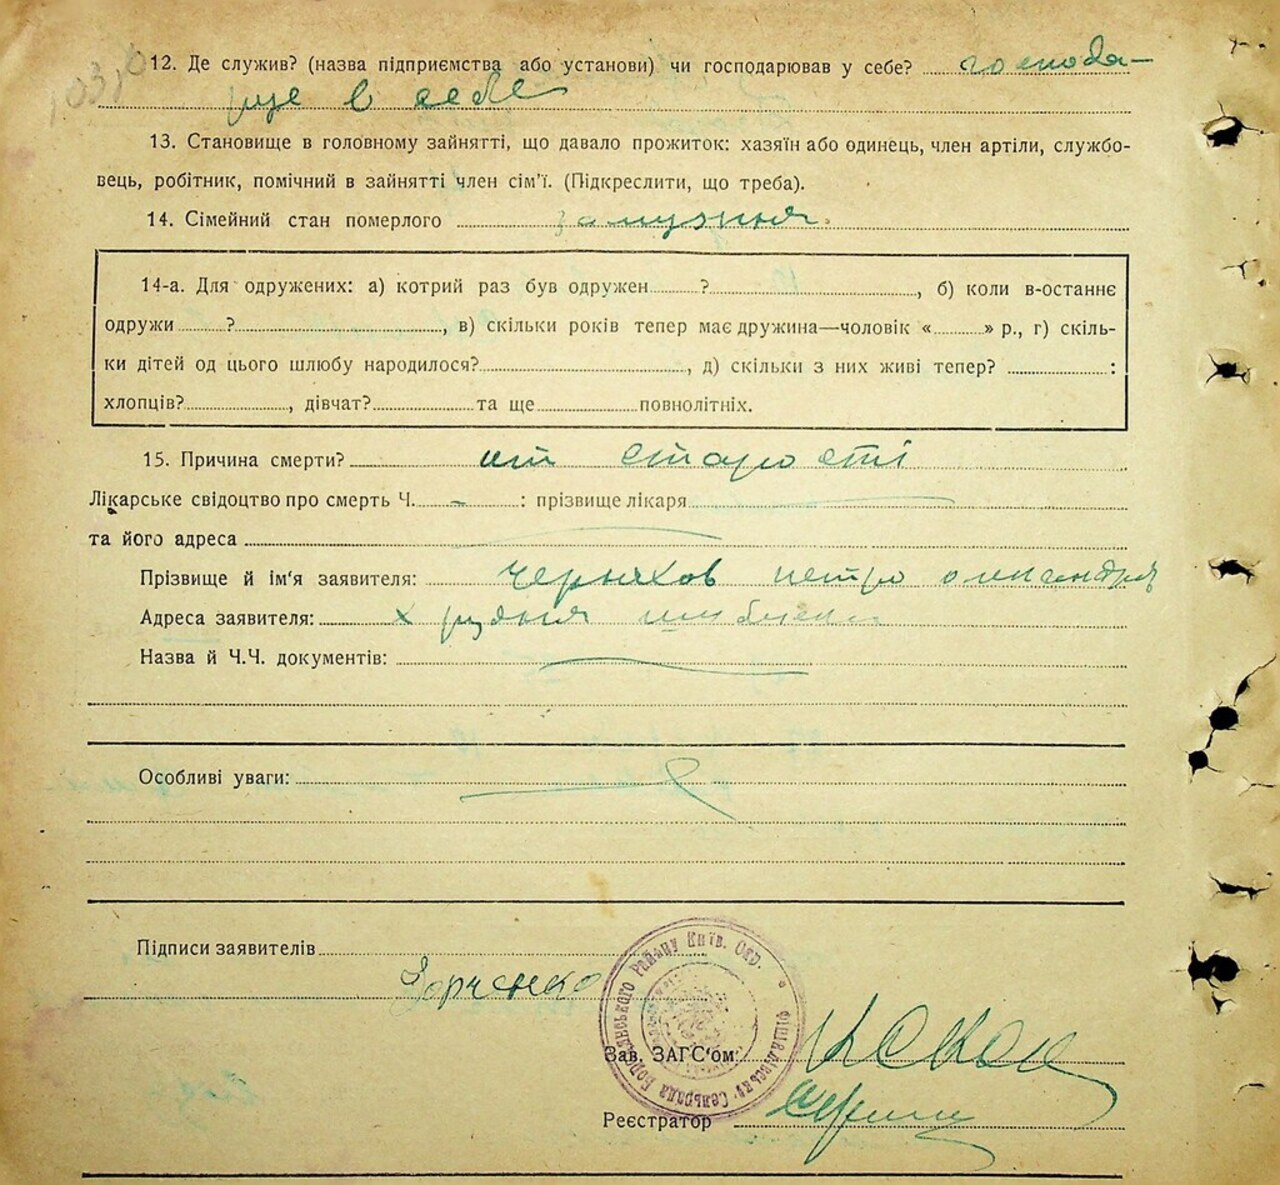 12. Де служив? (назва підприємства або установи) чи господарював у себе? господа-
рще в себе
13. Становище в головному зайнятті, що давало прожиток: хазяїн або одинець, член артіли, службо-
вець, робітник, помічний в зайнятті член сім'ї. (Підкреслити, що треба).
14. Сімейний стан померлого замужня.
14-а. Для одружених: а) котрий раз був одружен ? , б) коли в-останнє
одружи ? , в) скільки років тепер має дружина—чоловік « » р., г) скіль-
ки дітей од цього шлюбу народилося? , д) скільки з них живі тепер? :
хлопців? , дівчат? та ще повнолітніх.
15. Причина смерти? от старості
Лікарське свідоцтво про смерть Ч. - : прізвище лікаря
та його адреса
Прізвище й ім'я заявителя: Черняхов петро
Адреса заявителя: х рудня
Назва й Ч.Ч. документів:
Особливі уваги:
Підписи заявителів
Зав. ЗАГС'ом:
Реєстратор
Району Київ. Окр.